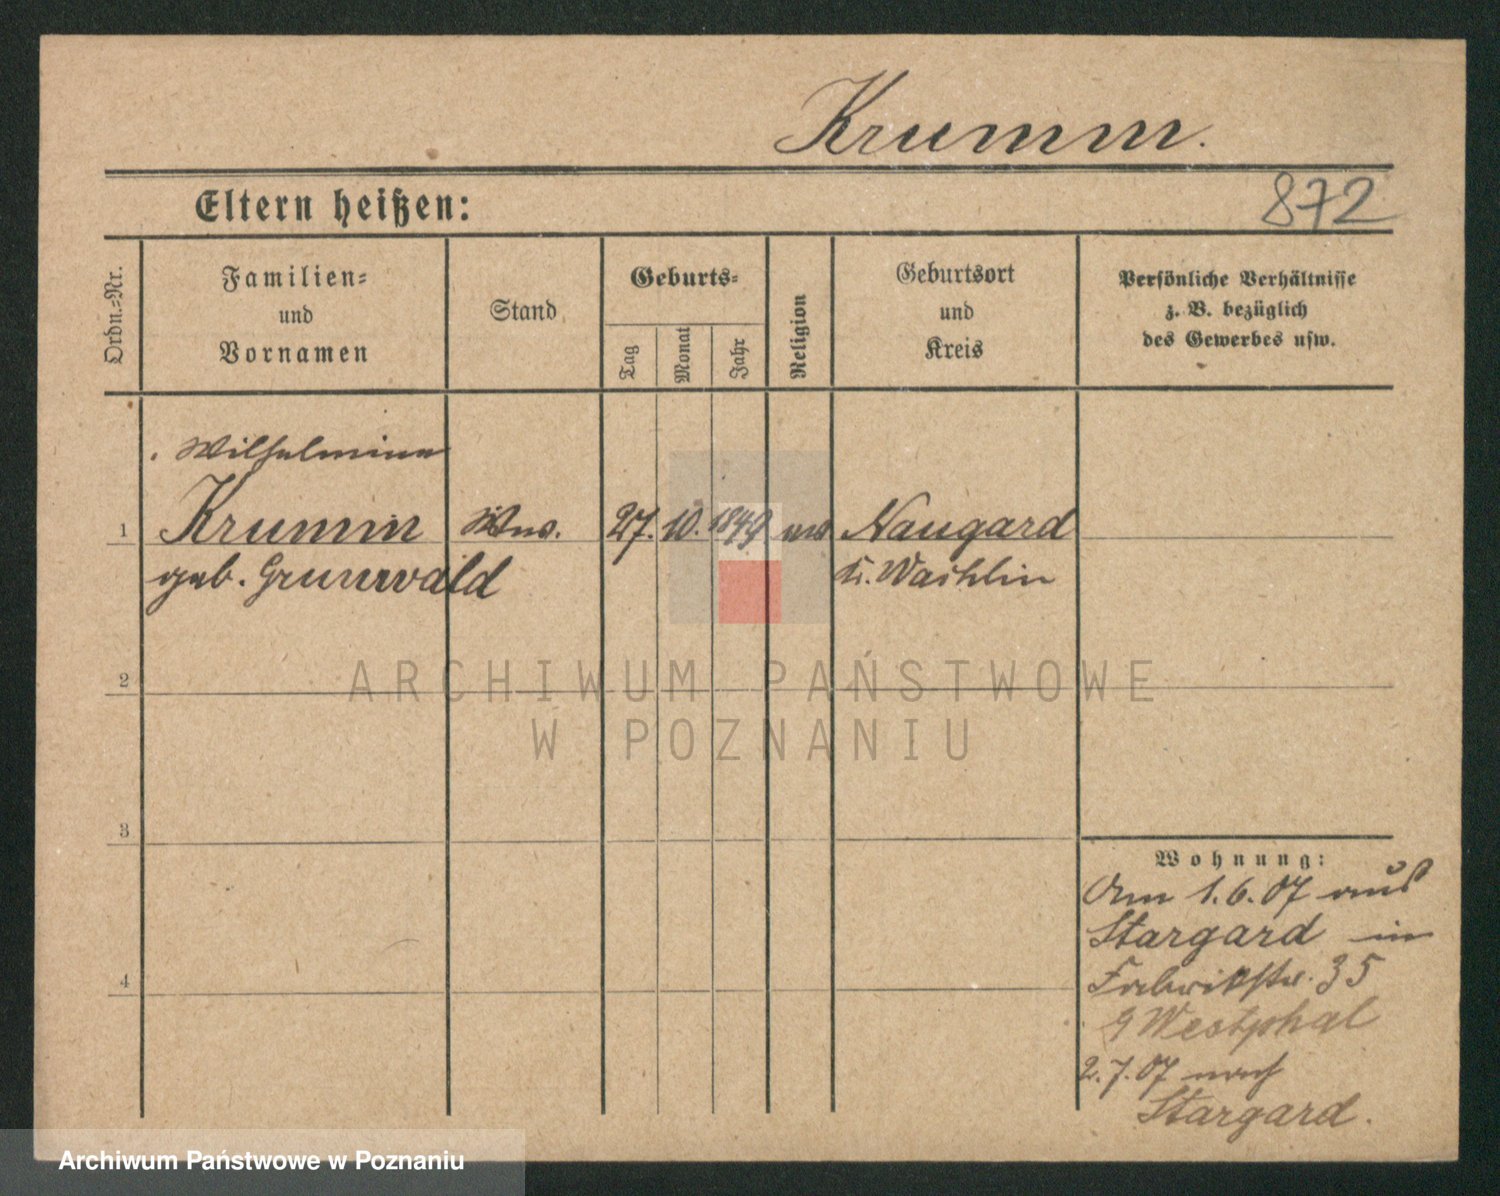 Krumm.
Eltern heißen:
872
Ordn.=Nr.
Familien=
und
Vornamen
Stand
Geburts=
Tag
Monat
Jahr
Religion
Geburtsort
und
Kreis
Persönliche Verhältnisse
z. B. bezüglich
des Gewerbes usw.
Wilhelmine
1 Krumm Ww. 27. 10. 1849 ev Naugard
geb. Grunwald K. Wachlin
2
3
4
Wohnung:
Am 1.6.07 aus
Stargard in
Fabrikstr. 35
Westphal
2.7.07 nach
Stargard.
ARCHIWUM PAŃSTWOWE
W POZNANIU
Archiwum Państwowe w Poznaniu